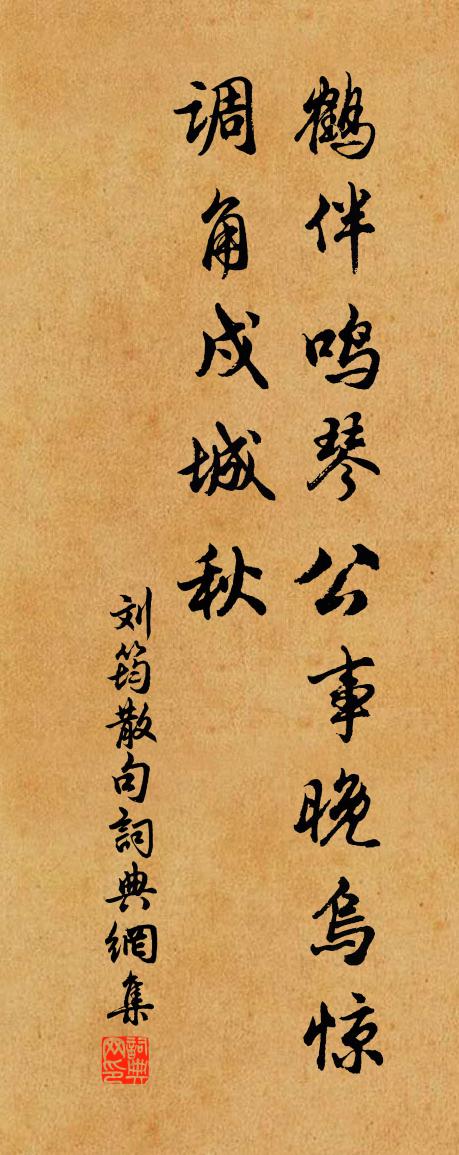 鹤伴鸣琴公事晚乌惊
调角戍城秋
刘筠散句詞典網集
詞典网印